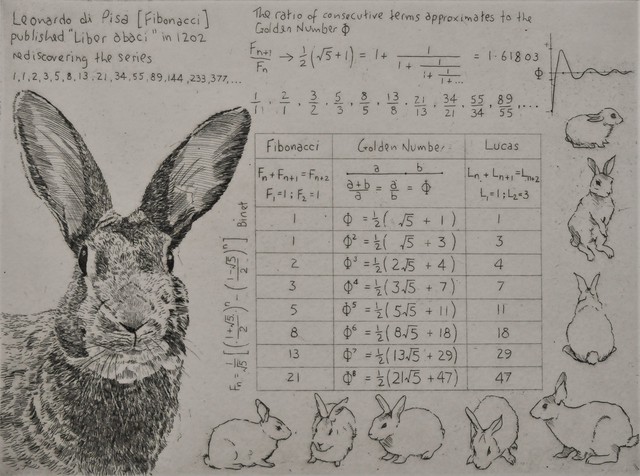 Leonardo di Pisa [Fibonacci]
published "Liber abaci" in 1202
rediscovering the series
1,1,2,3,5,8,13,21,34,55,89,144,233,377,...
The ratio of consecutive terms approximates to the
Golden Number ϕ
Fn+1/Fn → 1/2(√5+1) = 1+ 1/(1+ 1/(1+ 1/(1+...))) = 1·61803
ϕ
1/1, 2/1, 3/2, 5/3, 8/5, 13/8, 21/13, 34/21, 55/34, 89/55,...
Fibonacci Golden Number Lucas
Fn + Fn+1 = Fn+2
F1=1; F2=1
a b
a+b/a = a/b = ϕ
Ln + Ln+1 = Ln+2
L1=1; L2=3
1 ϕ = 1/2( √5 + 1) 1
1 ϕ² = 1/2( √5 + 3) 3
2 ϕ³ = 1/2(2√5 + 4) 4
3 ϕ⁴ = 1/2(3√5 + 7) 7
5 ϕ⁵ = 1/2(5√5 + 11) 11
8 ϕ⁶ = 1/2(8√5 + 18) 18
13 ϕ⁷ = 1/2(13√5 + 29) 29
21 ϕ⁸ = 1/2(21√5 + 47) 47
Fn = 1/√5 [(1+√5/2)ⁿ − (1−√5/2)ⁿ] Binet